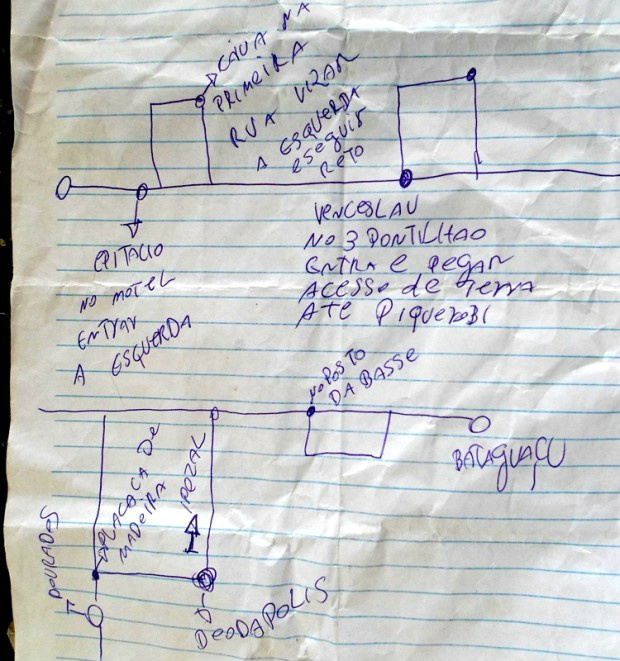 CAIUA NA
PRIMEIRA
RUA VIZAR
A ESQUERDA
e SEGUIR
RETO
EPITACIO
NO MOTEL
ENTRAR
A ESQUERDA
VENCESLAU
NO 3 PONTILHAO
ENTRA e PEGAR
ACESSO de TERRA
ATE PIQUEROBI
NO POSTO
DA BASSE
BATAGUAÇU
DE
MADEIRA
DOURADOS
DEODAPOLIS